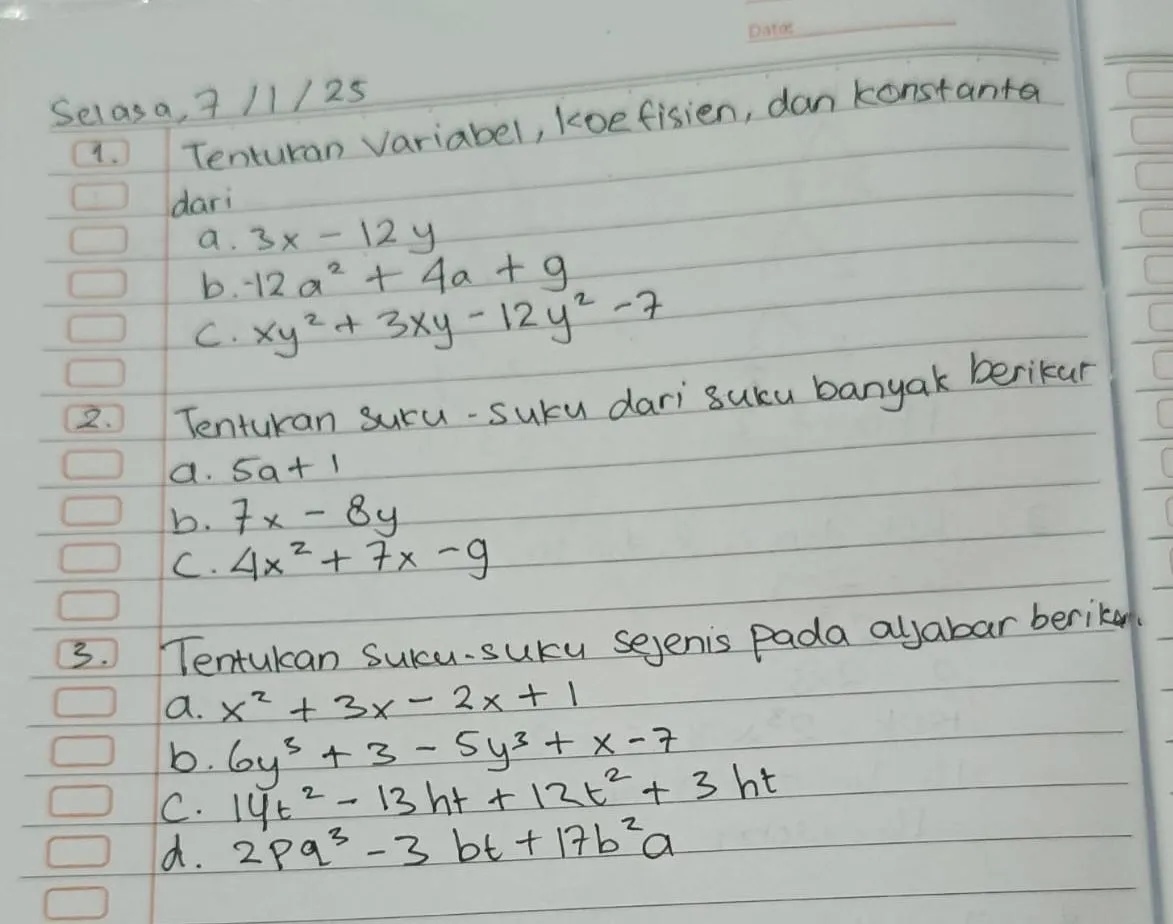 Date:
Selasa, 7/1/25
1. Tentukan variabel, koefisien, dan konstanta
dari
a. 3x - 12y
b. -12a² + 4a + 9
c. xy² + 3xy - 12y² - 7
2. Tentukan suku-suku dari suku banyak berikut
a. 5a + 1
b. 7x - 8y
c. 4x² + 7x - 9
3. Tentukan suku-suku sejenis pada aljabar berikut.
a. x² + 3x - 2x + 1
b. 6y³ + 3 - 5y³ + x - 7
c. 14t² - 13ht + 12t² + 3ht
d. 2pq³ - 3bt + 17b²a